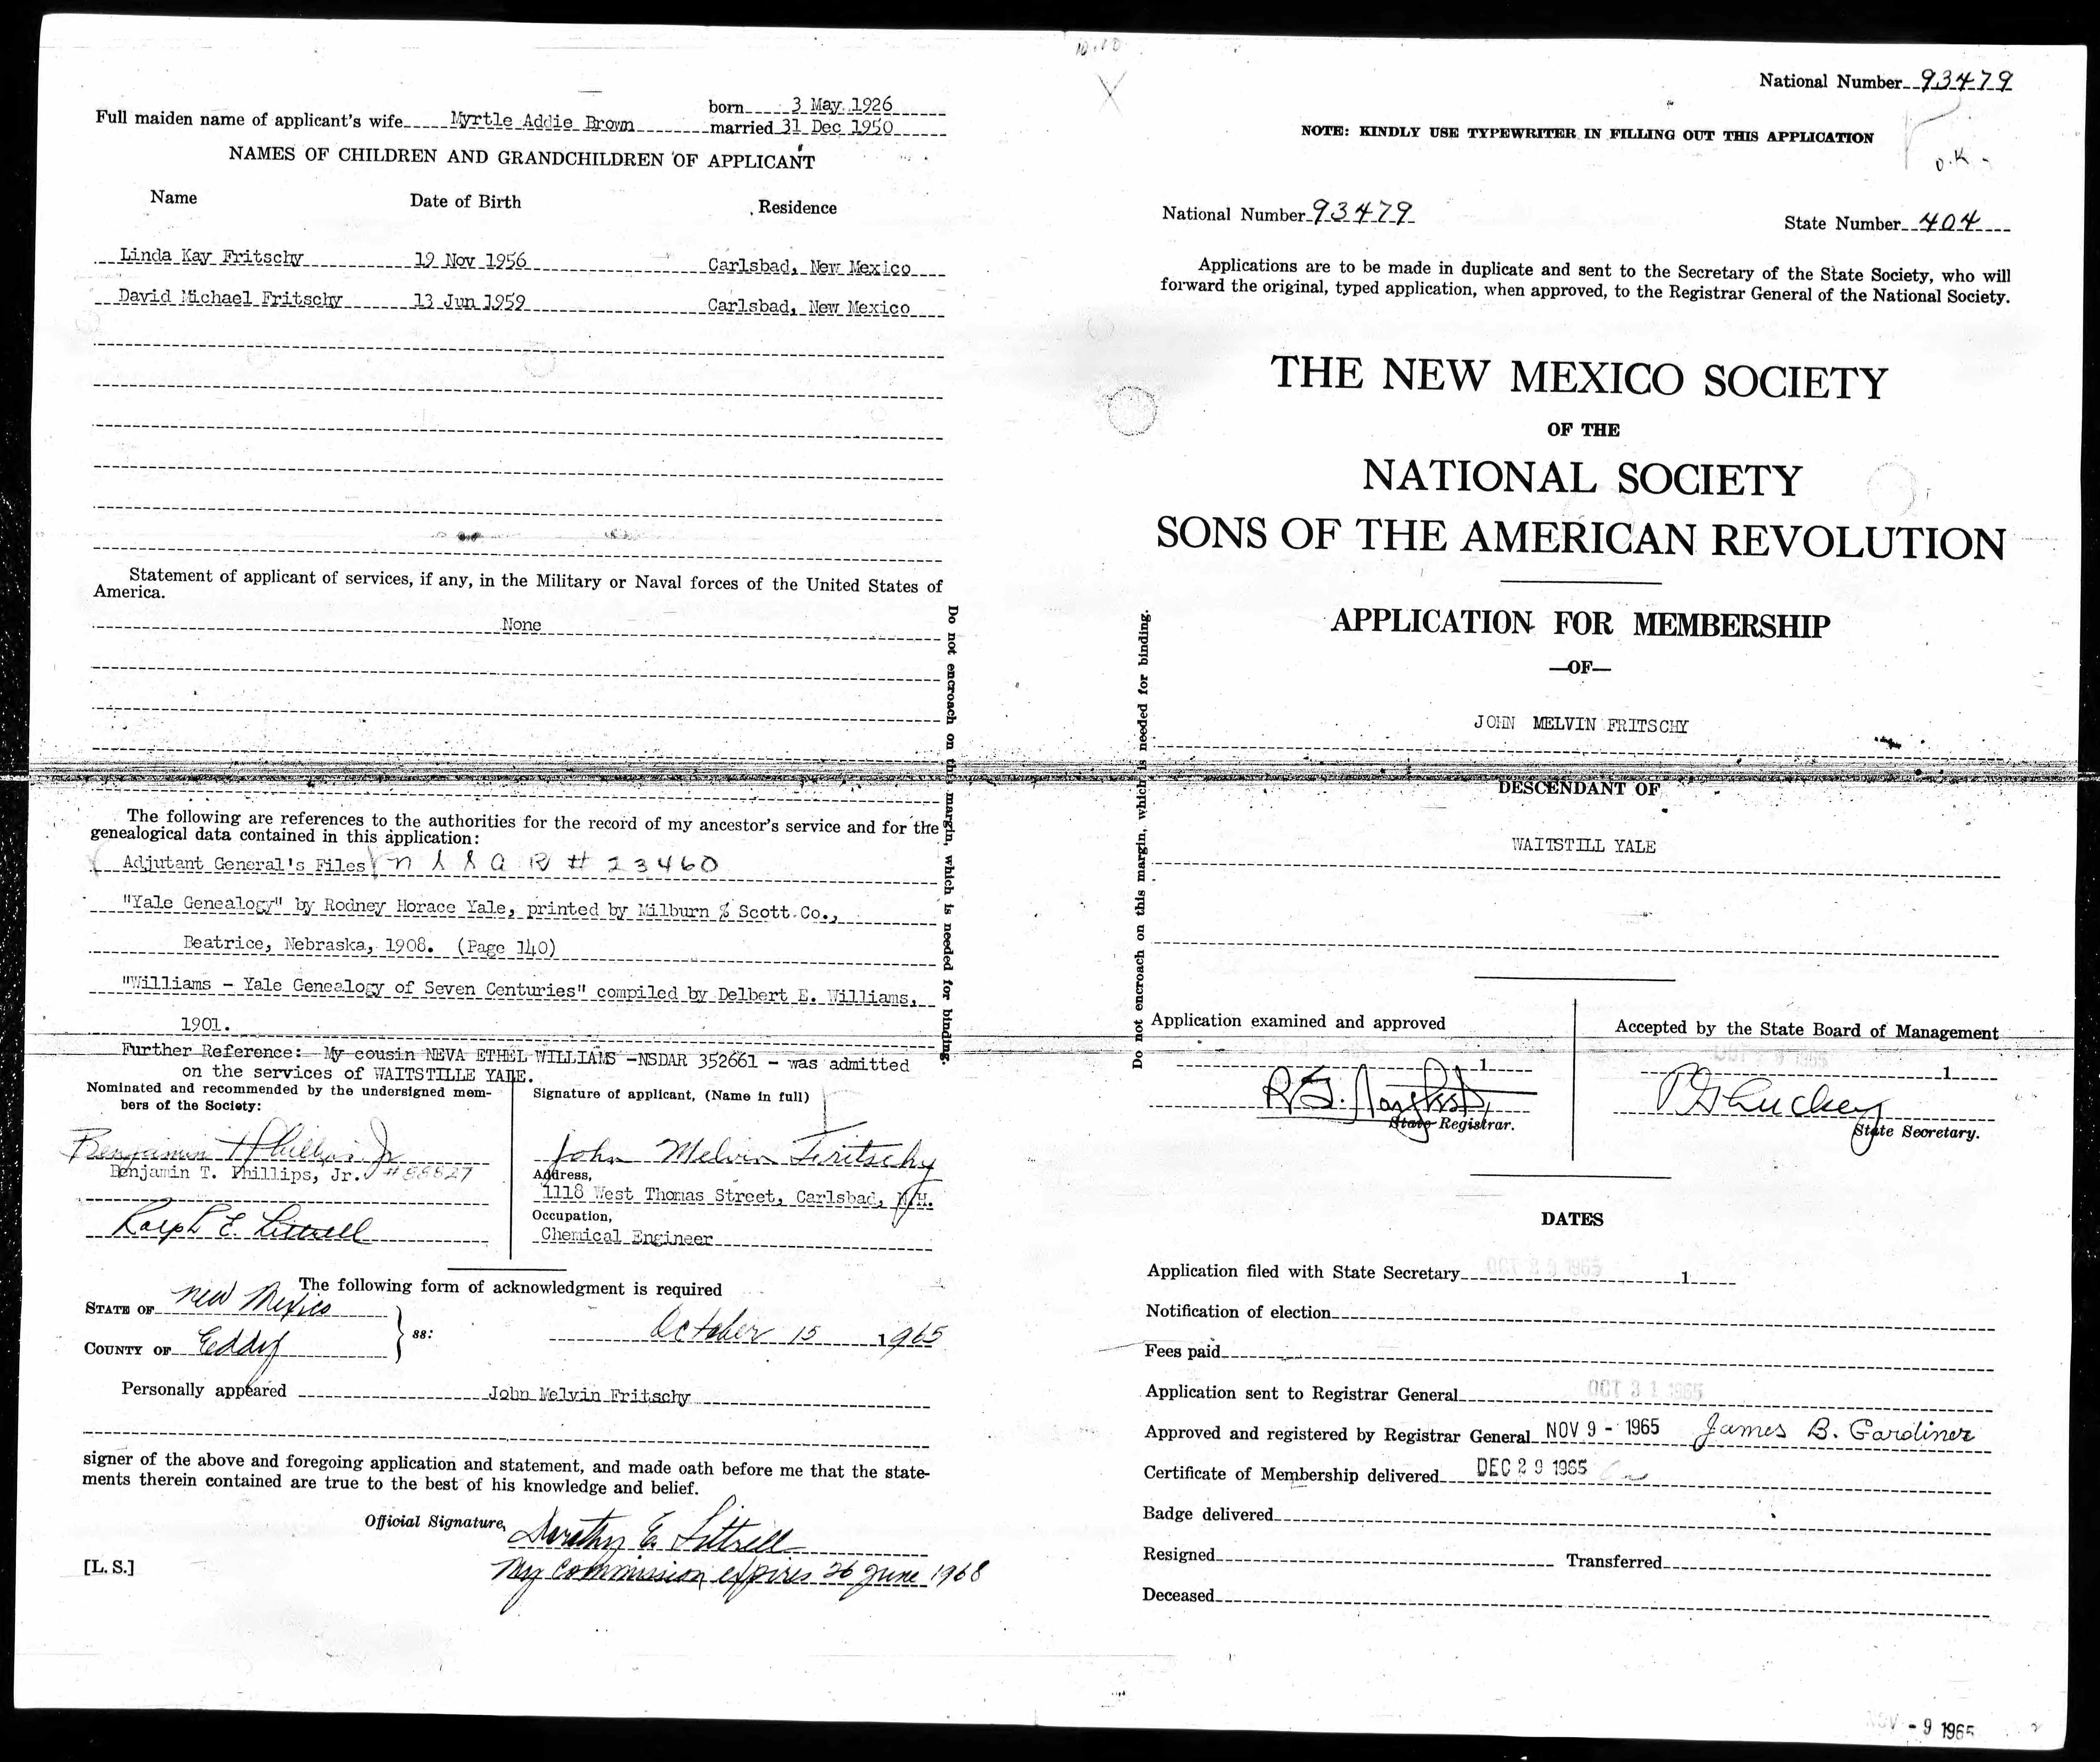 Full maiden name of applicant's wife Myrtle Addie Brown born 3 May 1926
married 31 Dec 1950
NAMES OF CHILDREN AND GRANDCHILDREN OF APPLICANT
Name Date of Birth Residence
Linda Kay Fritschy 19 Nov 1956 Carlsbad, New Mexico
David Michael Fritschy 13 Jun 1959 Carlsbad, New Mexico
Statement of applicant of services, if any, in the Military or Naval forces of the United States of
America.
None
The following are references to the authorities for the record of my ancestor's service and for the
genealogical data contained in this application:
Adjutant General's Files n s s a R # 23460
"Yale Genealogy" by Rodney Horace Yale, printed by Milburn & Scott Co.,
Beatrice, Nebraska, 1908. (Page 140)
"Williams - Yale Genealogy of Seven Centuries" compiled by Delbert E. Williams,
1901.
Further Reference: My cousin NEVA ETHEL WILLIAMS -NSDAR 352661 - was admitted
on the services of WAITSTILLE YALE.
Nominated and recommended by the undersigned mem-
bers of the Society:
Benjamin T. Phillips Jr.
Benjamin T. Phillips, Jr. #88827
Ralph E. Littrell
Signature of applicant, (Name in full)
John Melvin Fritschy
Address,
1118 West Thomas Street, Carlsbad, N.M.
Occupation,
Chemical Engineer
The following form of acknowledgment is required
STATE OF New Mexico
COUNTY OF Eddy
ss: October 15 1965
Personally appeared John Melvin Fritschy
signer of the above and foregoing application and statement, and made oath before me that the state-
ments therein contained are true to the best of his knowledge and belief.
Official Signature, Dorothy E. Littrell
My commission expires 26 June 1968
[L. S.]
Do not encroach on this margin, which is needed for binding.
National Number 93479
NOTE: KINDLY USE TYPEWRITER IN FILLING OUT THIS APPLICATION
O.K.
National Number 93479 State Number 404
Applications are to be made in duplicate and sent to the Secretary of the State Society, who will
forward the original, typed application, when approved, to the Registrar General of the National Society.
THE NEW MEXICO SOCIETY
OF THE
NATIONAL SOCIETY
SONS OF THE AMERICAN REVOLUTION
APPLICATION FOR MEMBERSHIP
—OF—
JOHN MELVIN FRITSCHY
DESCENDANT OF
WAITSTILL YALE
Do not encroach on this margin, which is needed for binding.
Application examined and approved
1
State Registrar.
Accepted by the State Board of Management
1
State Secretary.
DATES
Application filed with State Secretary OCT 29 1965 1
Notification of election
Fees paid
Application sent to Registrar General OCT 31 1965
Approved and registered by Registrar General NOV 9 - 1965 James B. Gardiner
Certificate of Membership delivered DEC 29 1965
Badge delivered
Resigned Transferred
Deceased
NOV - 9 1965